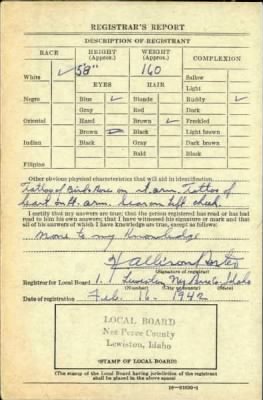 REGISTRAR'S REPORT
DESCRIPTION OF REGISTRANT
RACE HEIGHT (Approx.) WEIGHT (Approx.) COMPLEXION
White ✓ 5'8" 160 Sallow
EYES HAIR Light
Negro Blue ✓ Blonde Ruddy ✓
Gray Red Dark
Oriental Hazel Brown ✓ Freckled
Brown Black Light brown
Indian Black Gray Dark brown
Bald Black
Filipino
Other obvious physical characteristics that will aid in identification
Tattoo of on rt. arm. Tattoo of
heart on lft. arm. Scar on left cheek.
I certify that my answers are true; that the person registered has read or has had
read to him his own answers; that I have witnessed his signature or mark and that
all of his answers of which I have knowledge are true, except as follows:
None to my Knowledge
(Signature of registrar)
Registrar for Local Board 1 Lewiston Nez Perce Idaho
Date of registration Feb. 16, 1942
LOCAL BOARD
Nez Perce County
Lewiston, Idaho
(STAMP OF LOCAL BOARD)
(The stamp of the Local Board having jurisdiction of the registrant
shall be placed in the above space)